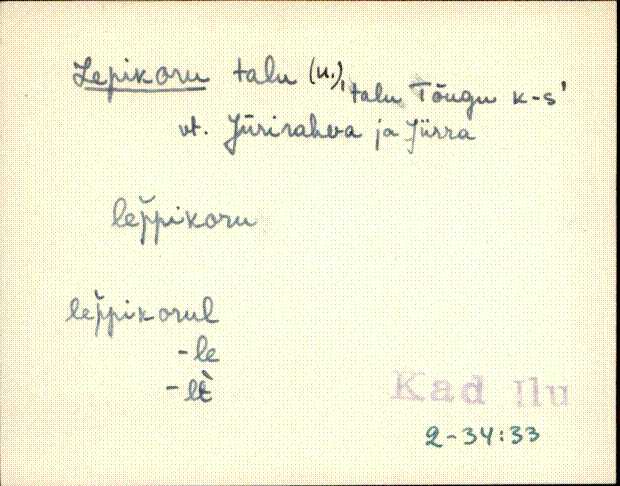 Lepikoru talu (u.), talu Tõugu k-s'
vt. Jürirahva ja Jürra
lep̆pikoru
lep̆pikorul
-le
-lt̀
Kad Ilu
2-34:33